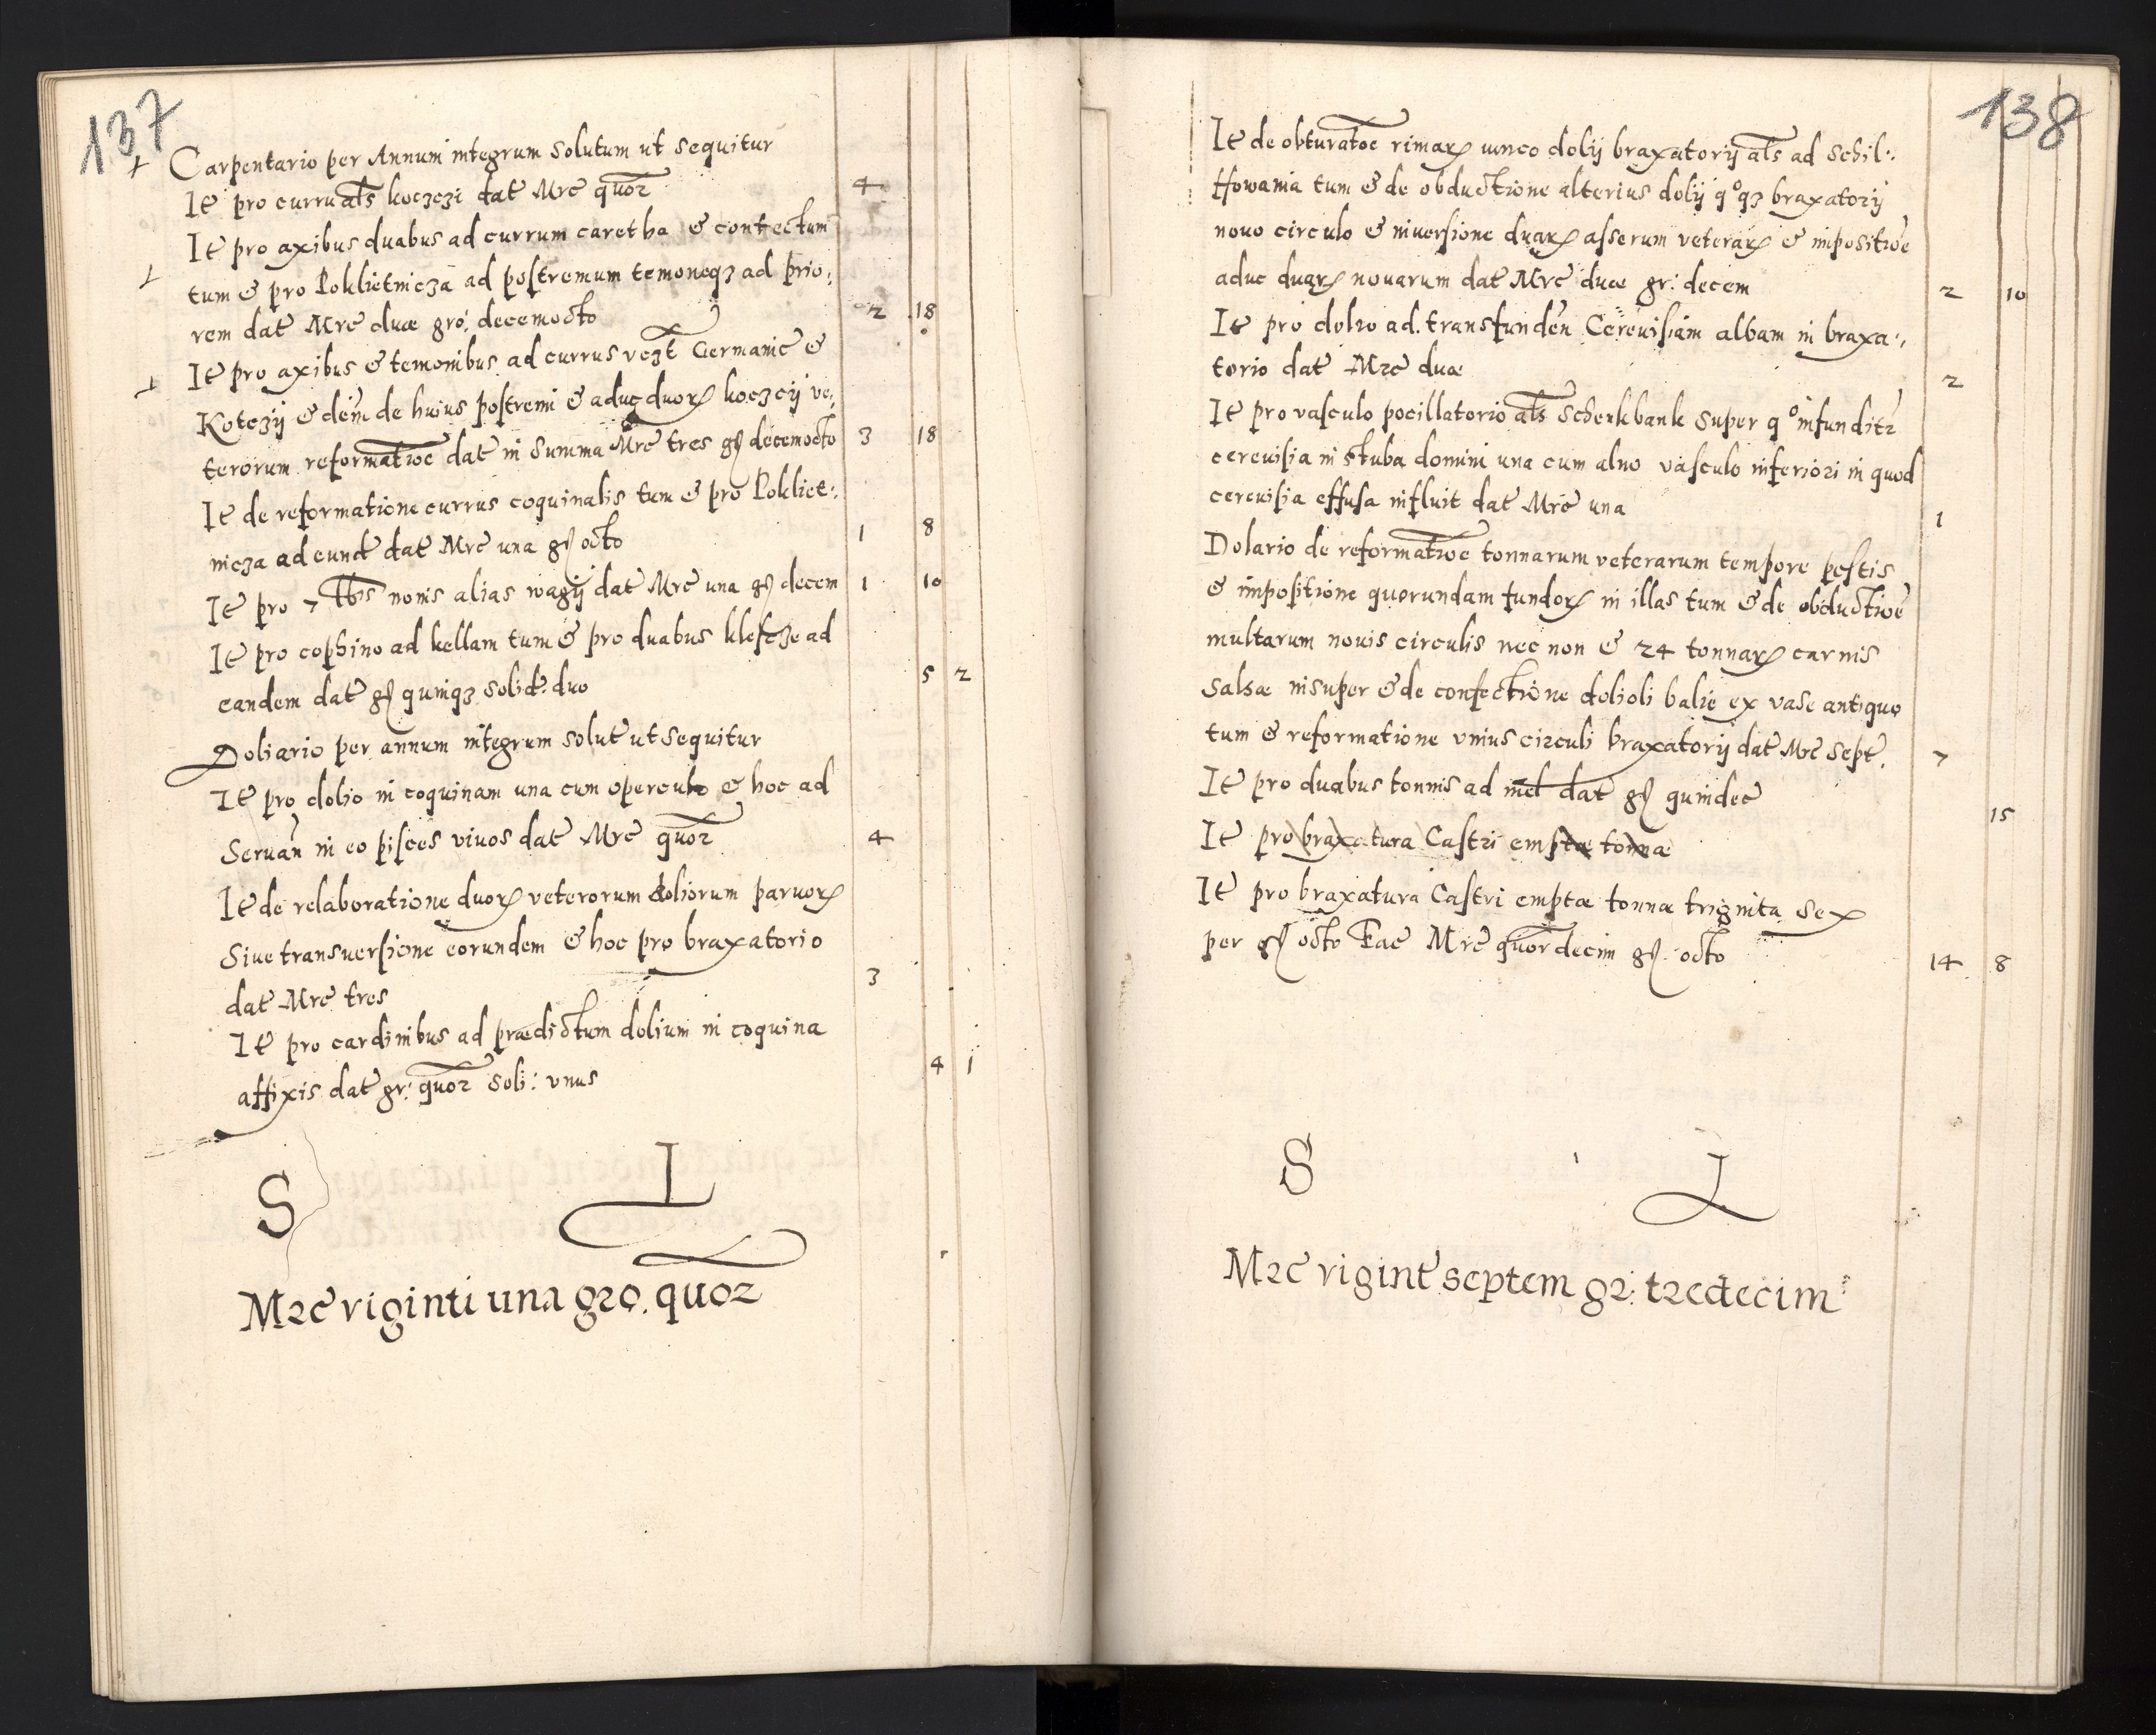 137
Carpentario per Annum integrum solutum ut sequitur
It pro curru als koczczi dat Mrc quor 4
It pro axibus duabus ad currum caretha & contectum
tum & pro Poklietnicza ad postremum temoneqz ad prio:
rem dat Mrc duæ gro: decemocto 2 18
It pro axibus & temonibus ad currus vczt Germanic &
Kotczij & dem de huius postremi & aduc duorꝝ koczcij ve:
terorum reformatioe dat in summa Mrc tres gꝭ decemocto 3 18
It de reformatione currus coquinalis tum & pro Pokliet:
nicza ad eund dat Mrc una gꝭ octo 1 8
It pro nonis alias wagij dat Mrc una gꝭ decem 1 10
It pro cophino ad kellam tum & pro duabus klescze ad
eandem dat gꝭ quinqz solid: duo 5 2
Doliario per annum integrum solut ut sequitur
It pro dolio in coquinam una cum operculo & hoc ad
Seruan in eo pisces viuos dat Mrc quor 4
It de relaboratione duorꝝ veterorum doliorum paruorꝝ
Siue transuersione eorundem & hoc pro braxatorio
dat Mrc tres 3
It pro cardinibus ad prædictum dolium in coquina
affixis dat gr: quor soli: vnus 4 1
S L
Mrc viginti una gro. quor
138
It de obturatoe rimarꝝ iunco dolij braxatorij als ad Schil:
Howania tum & de obductione alterius dolij qoqz braxatorij
nouo circulo & inuersione duarꝝ asserum veterarꝝ & impositioe
aduc duarꝝ nouarum dat Mrc duæ gr: decem 2 10
It pro dolio ad transfunden Cereuisiam albam in braxa:
torio dat Mrc duæ 2
It pro vasculo pocillatorio als Schenkbank super qo infunditr
cereuisia in stuba domini una cum alno vasculo inferiori in quod
cereuisia effusa influit dat Mrc una 1
Dolario de reformatioe tonnarum veterarum tempore pestis
& impositione quorundam fundorꝝ in illas tum & de obductioe
multarum nouis circulis nec non & 24 tonnarꝝ carnis
salsæ insuper & de confectione dolioli balie ex vase antiquo
tum & reformatione vnius circuli braxatorij dat Mrc sept. 7
It pro duabus tonnis ad mel dat gꝭ quindec 15
It pro braxatura Castri emptæ tonnæ
It pro braxatura Castri emptæ tonnæ triginta sex
per gꝭ octo Fac Mrc quordecim gꝭ octo 14 8
S L
Mrc vigint septem gr: tredecim